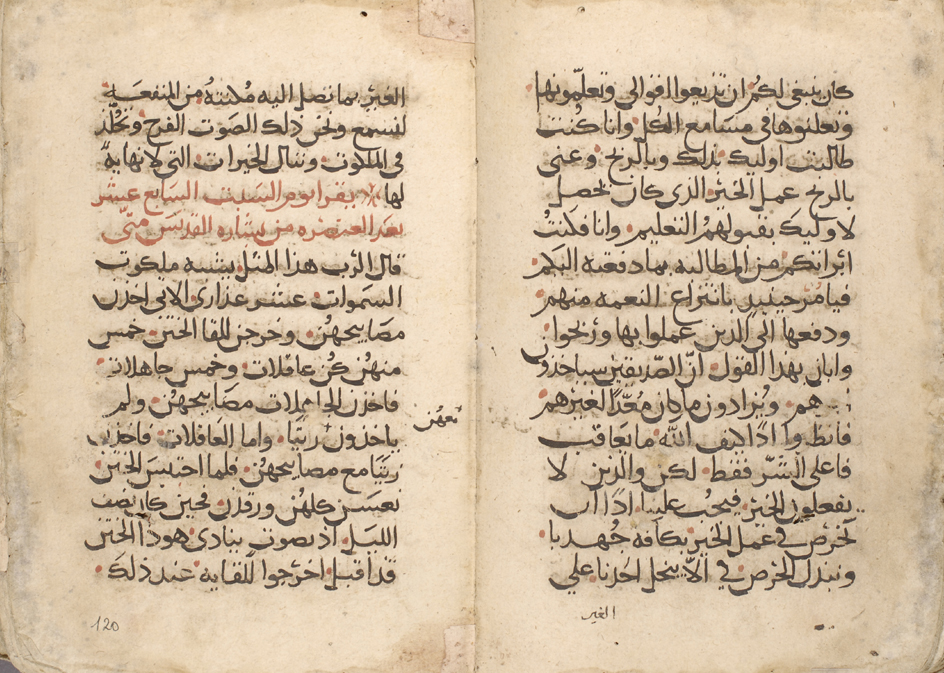 كان ينبغي لكم ان تذيعوا اقوالي وتعلمونها
وتعلنوها في مسامع الكل وانا كنت
طالبت اوليك بذلك وبالربح وعنى
بالربح عمل الخير الذي كان يحصل
لاوليك بقبولهم التعليم وانا فكنت
ابراتكم من المطالبه بما دفعته اليكم
فيامر حينيذ بانتزاع النعمه منهم
ودفعها الي الذين عملوا بها وربحوا
وابان بهذا القول ان الصديقين سياخذون
هم ويزادون ما كان معدا لغيرهم
فانظروا اذا كيف الله ما يعاقب
فاعلي الشر فقط لكن والذين لا
يفعلون الخير فيجب علينا اذا ان
نحرص في عمل الخير بكافه جهدنا
ونبدل الحرص في الا يبخل احدنا علي
الغير
الغير بما تصل اليه مكنته من المنفعه
لنسمع ونحن ذلك الصوت الفرح ونخلد
في الملكوت وننال الخيرات التي لا نهاية
لها يقرا يوم السبت السابع عشر
بعد العنصره من بشاره القديس متى
قال الرب هذا المثل يشبه ملكوت
السموات عشر عذاري الاتي اخذن
مصابيحهن وخرجن للقا الختن خمس
منهن كن عاقلات وخمس جاهلات
فاخذن الجاهلات مصابيحهن ولم
ياخذون زيتا واما العاقلات فاخذن
معهن
زيتا مع مصابيحهن فلما احتبس الختن
نعسن كلهن ورقدن فحين كان نصف
الليل اذ بصوت ينادي هوذا الختن
قد اقبل اخرجوا للقايه عند ذلك
120